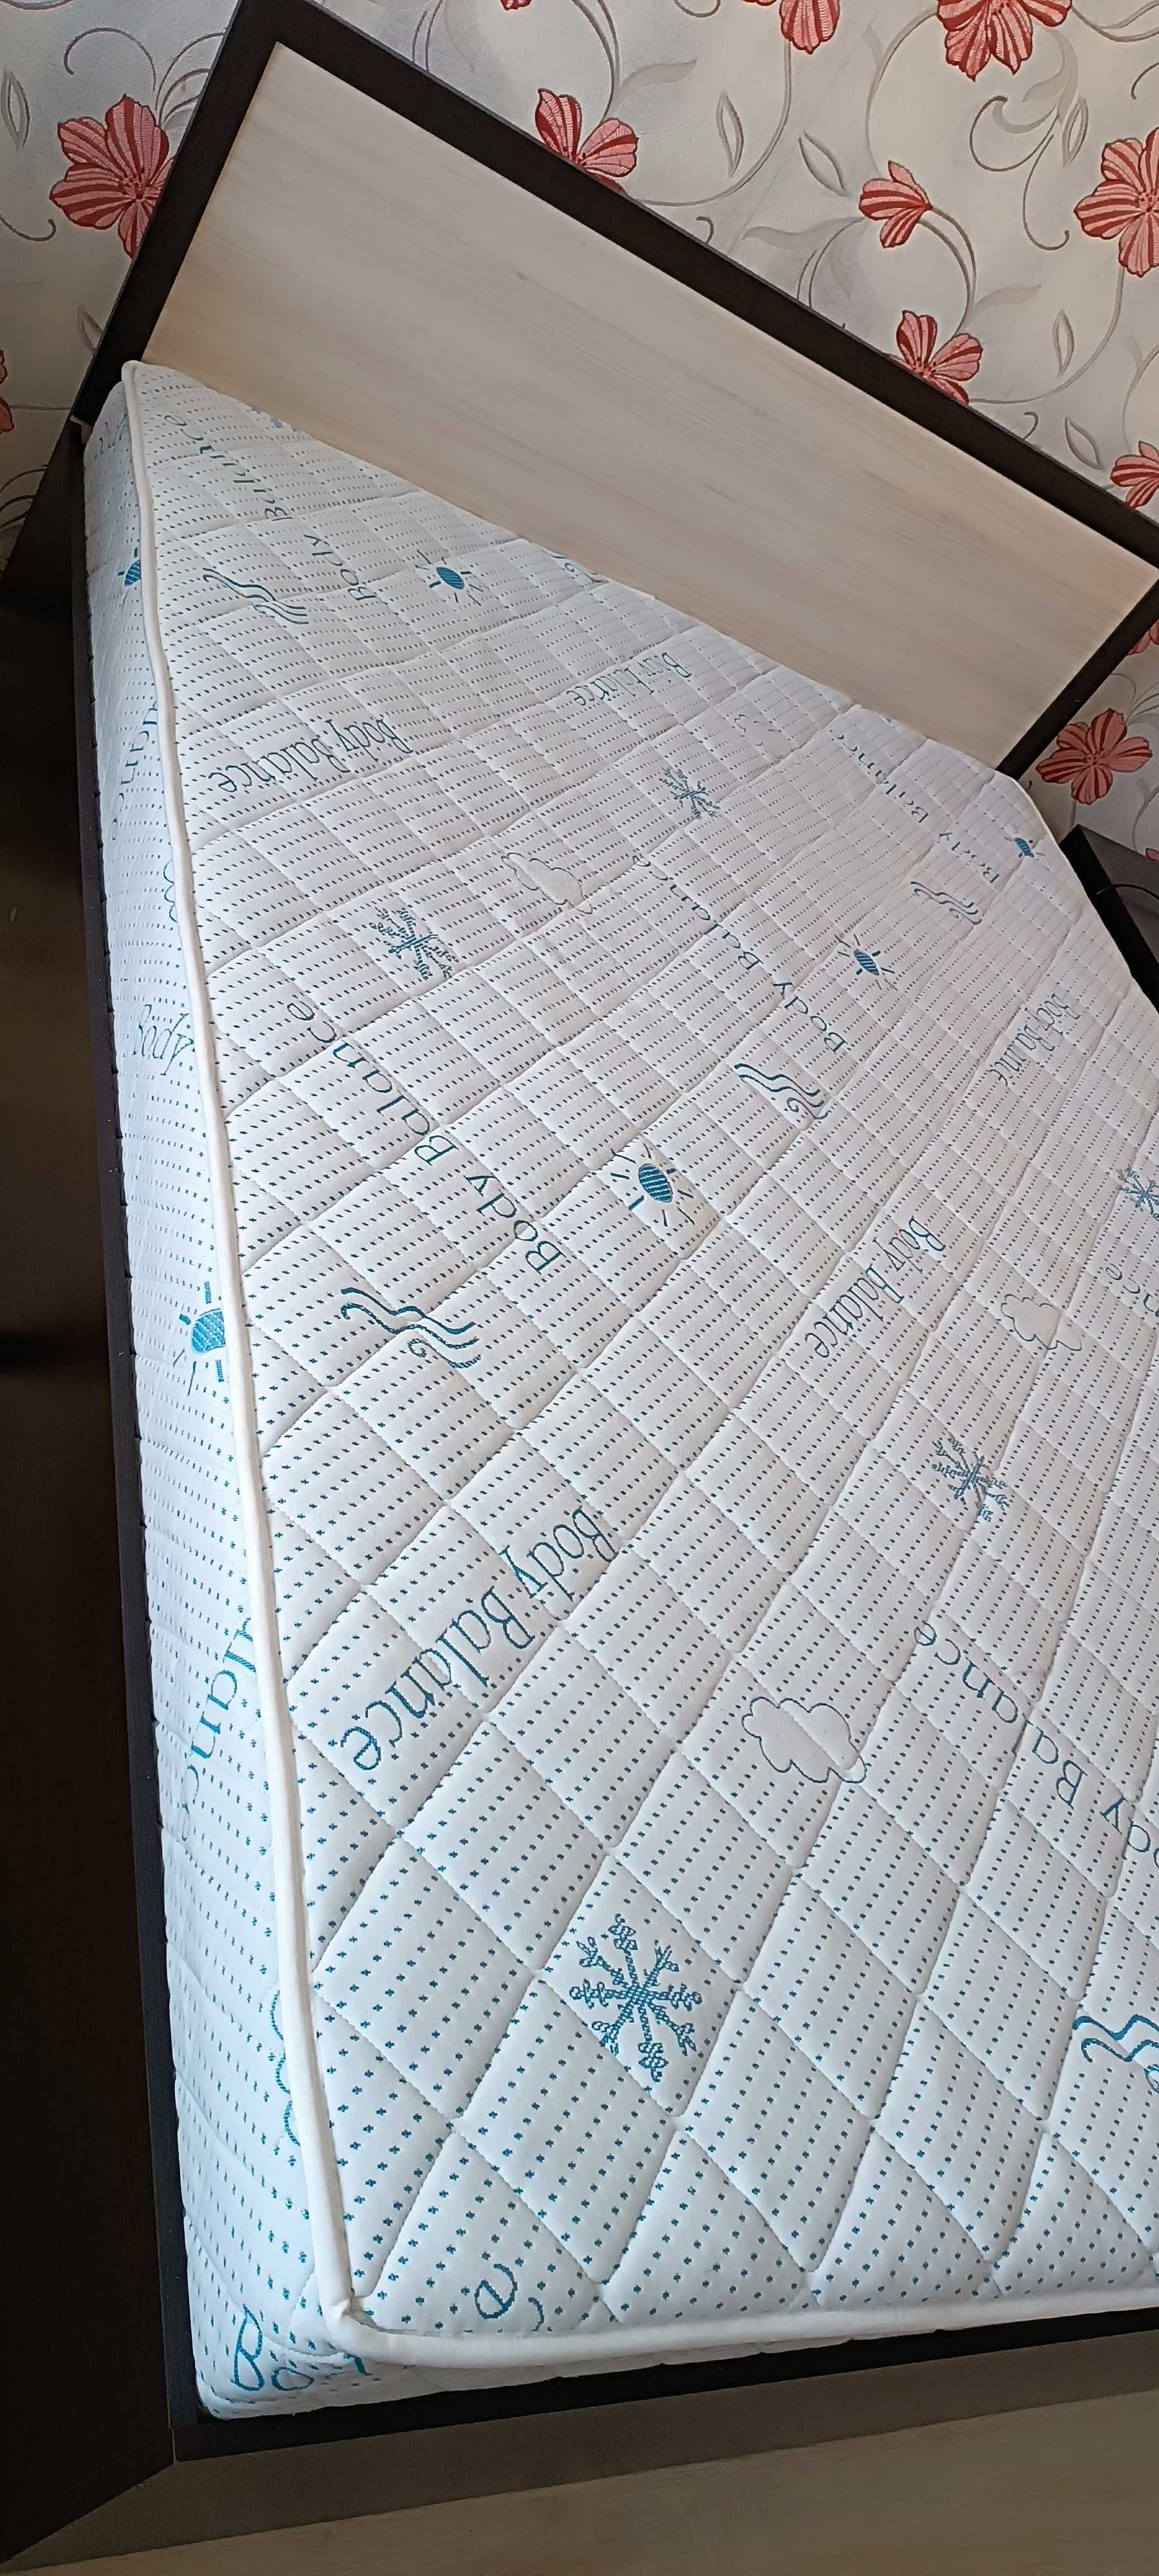 Body Balance
Body Balance
Body Balance
Body Balance
Body Balance
Body Balance
Body Balance
Body Balance
Body Balance
Body Balance
Body